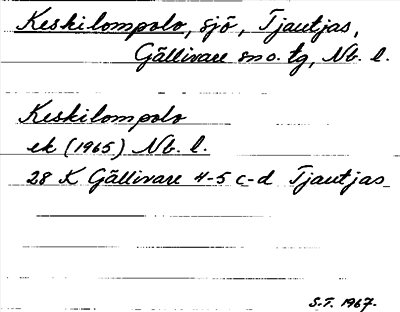 Keskilompolo, sjö, Tjautjas,
Gällivare sno. tg, Nb. l.
Keskilompolo
ek (1965) Nb. l.
28 K Gällivare 4-5 c-d Tjautjas
S.T. 1967.